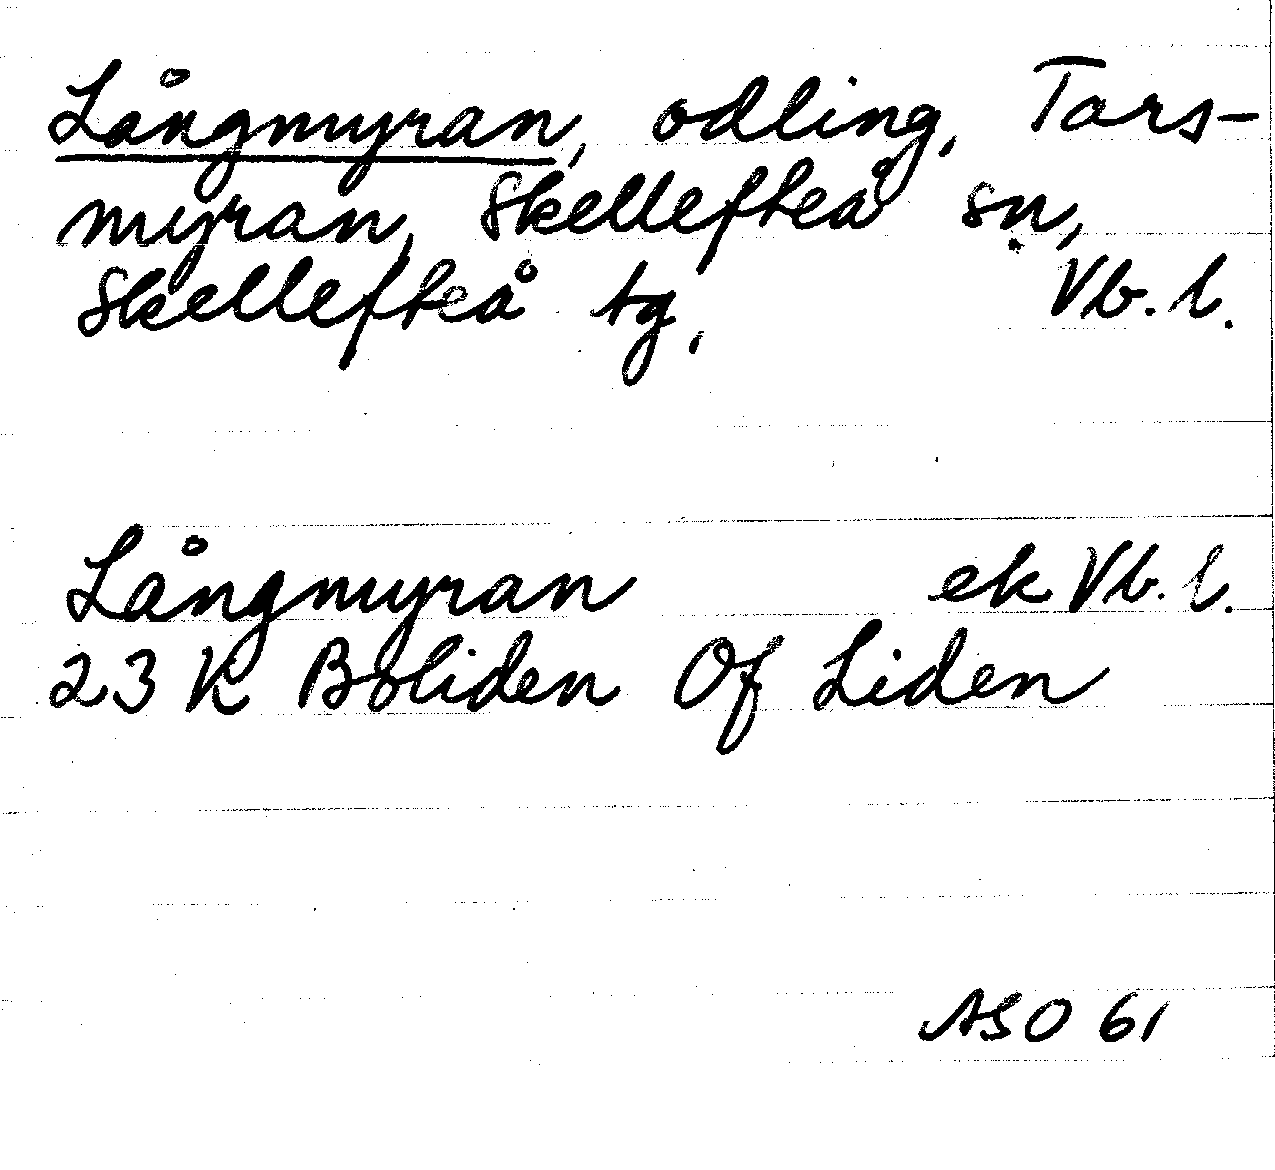 Långmyran, odling, Tars-
myran, Skellefteå sn,
Skellefteå tg, Vb. l.
Långmyran ek Vb. l.
23 K Boliden Of Liden
ASO 61